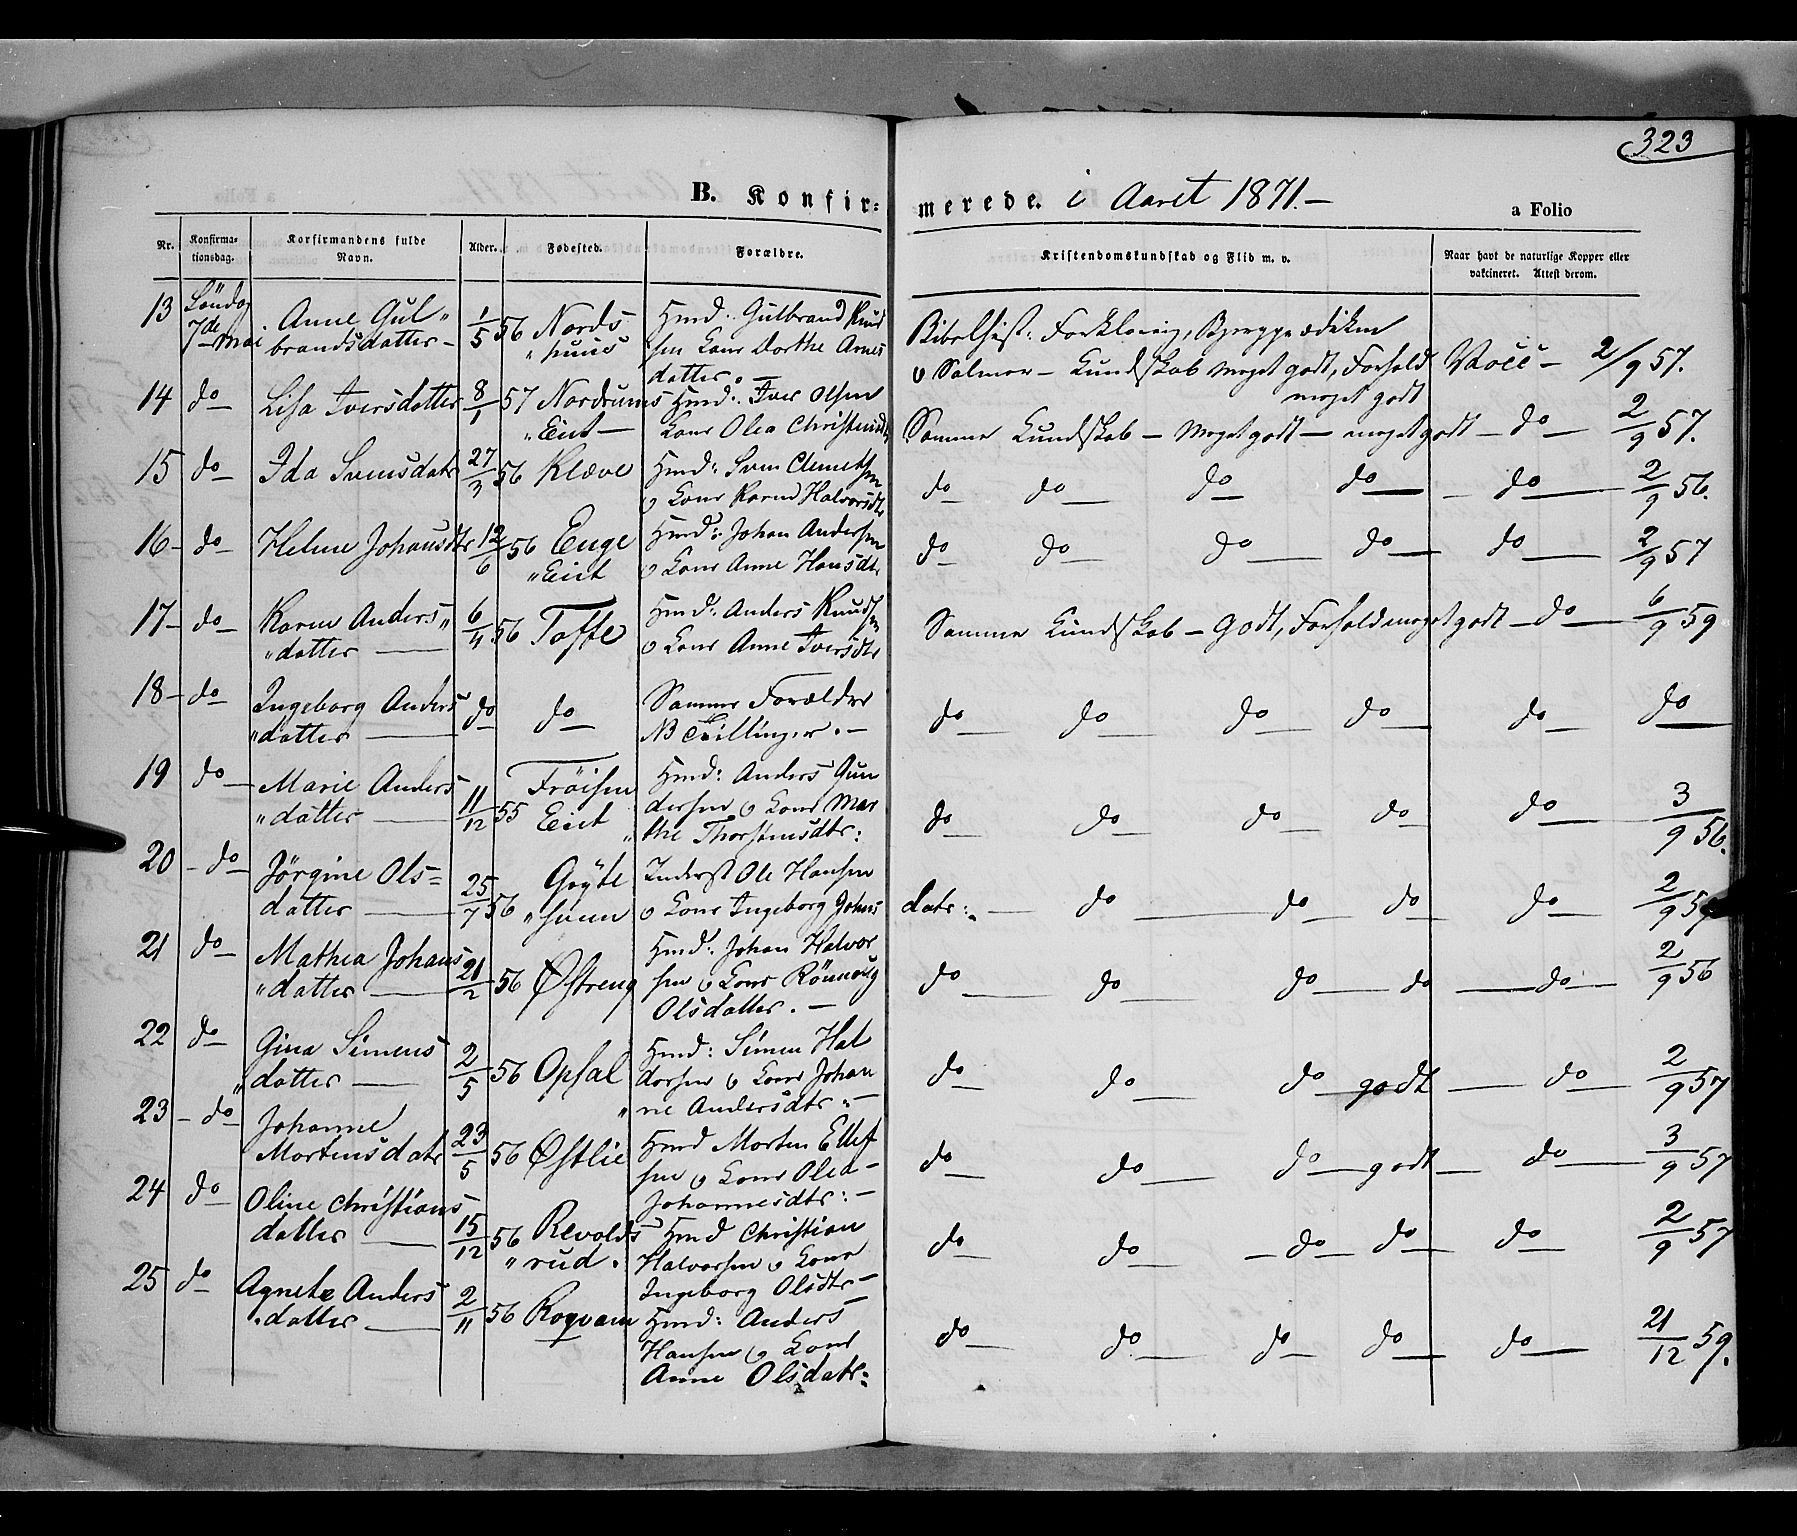 323
B. Konfir=
merede. i Aaret 1871.—
a Folio
Nr.
Konfirma-
tionsdag.
Korfirmandens fulde
Navn.
Alder.
Fødested.
Forældre.
Kristendomskundskab og Flid m. v.
Naar havt de naturlige Kopper eller
vakcineret. Attest derom.
13 Søndag
7de Mai
Anne Gul„
brandsdatter—
1/5 56
Nords
„huus
Hmd: Gulbrand Knud
sen Kone Dorthe Arnes
datter.—
Bibelhist: Forklaring, Bjergprædiken
o Salmer— Kundskab meget godt, Forhold
meget godt
Vacc— 2/9 57.
14 do— Lisa Iversdatter 8/1 57 Nordrums
„Eiet—
Hmd: Iver Olsen
Kone Olea Christensd
Samme Kundskab— Meget godt— meget godt— do— 2/9 57.
15 do— Ida Svensdatr 27/3 56 Klæve
Hmd: Sven Clemetsen
o Kone Karen Halvorsdtr
do— do— do— do— do— 2/9 56.
16— do— Helene Johansdtr 12/6 56 Enge
„Eiet
Hmd: Johan Andersen
o Kone Anne Hansdtr
do— do— do— do— do— 2/9 57
17— do— Karen Anders„
„datter—
6/4 56 Toffte
Hmd: Anders Knudsen
o Kone Anne Iversdtr
Samme Kundskab— Godt, Forhold meget godt— do— 6/9 59
18— do— Ingeborg Anders
„datter—
do do—
Samme Forældre
NB Tvillinger.—
do— do— do— do— do— do—
19 do— Marie Anders
„datter—
11/12 55 Frøisen
Eiet „
Hmd: Anders Gun
dersen o Kone Mar
the Thorstensdtr:
do— do— do— do— do— 3/9 56.
20 — do— Jørgine Ols=
datter—
25/7 56
„huen
Inderst Ole Hansen
o Kone Ingeborg Johns
datr:— do— do— do— do— 2/9
21 do— Mathea Johans
„datter—
21/2 56 Østreng
Hmd: Johan Halvor
sen o Kone Rønnoug
Olsdatter.—
do— do— do— do— do— 2/9 56
22 do— Gina Simens
„datter—
2/5 56 Opsal
Hmd: Simen Hal
dorsen o Kone Johan
„ ne Andersdtr.—
do— do— do— godt— do— 2/9 57
23 — do— Johanne
Mortensdatr
23/5 56 Østlie
Hmd Morten Ellef
sen o Kone Olea—
Johannesdtr:—
do— do— do— godt— do— 3/9 57
24 do— Oline Christians
datter—
15/12 56 Revolds
„rud.
Hmd Christian
Halvorsen o Kone
Ingeborg Olsdtr—
do— do— do— do— do— 2/9 57
25 do— Agnete Anders
„datter—
2/11 56 Roqvam
Hmd: Anders
Hansen o Kone
Anne Olsdatr:
do— do— do— do— do— 21/12 59.